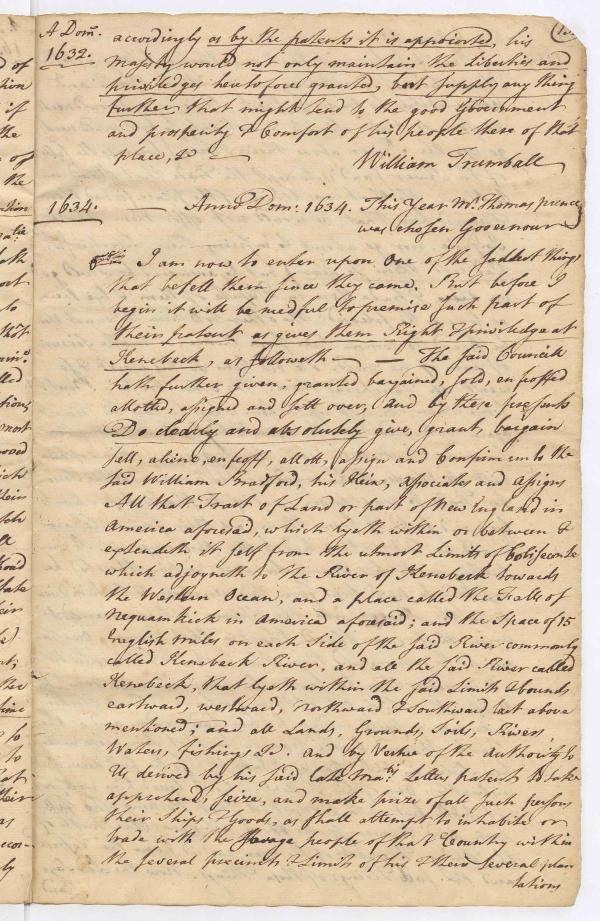 A Dom:
1632.
accordingly as by the patents it is appointed, his
majesty would not only maintain the Liberties and
priviledges heretofore granted, but supply any thing
further that might tend to the good Government
and prosperity & Comfort of his people there of that
place, &c —
William Trumball
1634. — Anno Dom: 1634. This Year Mr. Thomas prence
was chosen Governour
I am now to enter upon one of the saddest things
that befell them since they came. But before I
begin it will be needful to premise such part of
their patent as gives them Right & priviledge at
Kenebeck, as followeth — — The said Councill
hath further given, granted bargained, sold, enfeoffed
allotted, assigned and sett over, and by these presents
Do clearly and absolutely give, grant, bargain
sell, aliene, enfeoff, allott, assign and Confirm unto the
said William Bradford, his Heirs, associates and assigns
All that Tract of Land or part of New England in
America aforesaid, which lyeth within or between &
extendeth it self from the utmost Limits of Cobisecunte
which adjoyneth to the River of Kenebeck towards
the Western Ocean, and a place called the Falls of
Nequamkick in America aforesaid; and the Space of 15
English miles on each Side of the said River commonly
called Kenebeck River, and all the said River called
Kenebeck, that lyeth within the said Limits & bounds
eastward, westward, northward & Southward last above
mentioned; and all Lands, Grounds, Soils, Rivers,
Waters, fishings &c. and by Vertue of the authority to
Us derived by his said late Maty. Letters patents to take
apprehend, seize, and make prize of all such persons
their Ships & Goods, as shall attempt to inhabite or
trade with the Savage people of that Country within
the several precincts & Limits of his & their several plan
tations